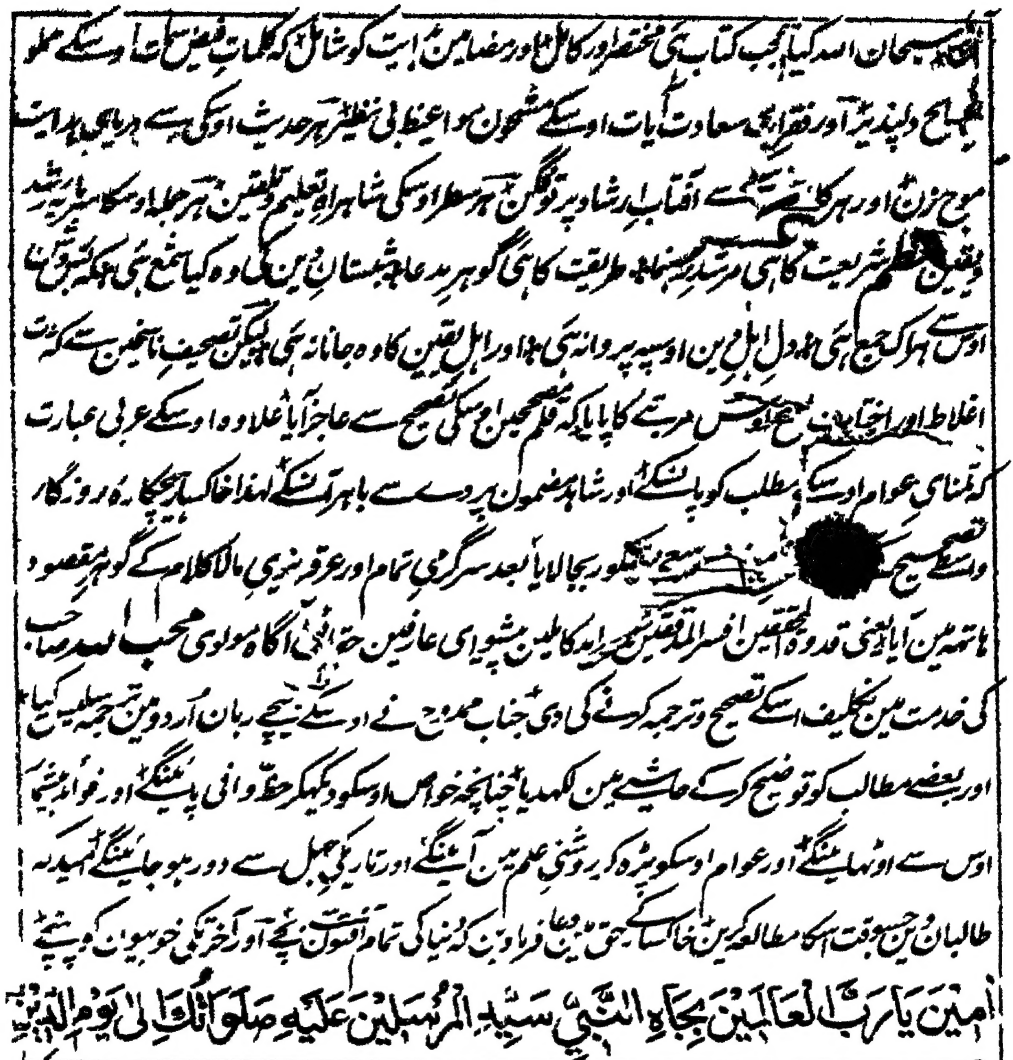 سبحان اللہ کیا عجب کتاب ہی مختصر اور کامل اور مضامین ہدایت کو شامل کہ کلمات فیض سمات اوسکے مملو
دلپذیر اور فقرات سعادت آیات اوسکے مشحون مواعظ بی نظیر ہر حدیث اوسکی ہے دریای ہدایت
موج زن اور ہر کلمہ سے آفتاب ارشاد پرتوفگن ہر سطر اوسکی شاہراہ تعلیم و تلقین ہر جملہ اوسکا
و یقین شریعت کا ہی مرشد رہنما طریقت کا ہی گوہر مدعا شبستان دین کی وہ کیا شمع ہی کہ
اوس سے ہو اک جمع ہی دل اہل دین اوسپہ پروانہ ہی اور اہل یقین کا وہ جانانہ ہی لیکن تصحیف ناسخین سے کثرت
اغلاط اور اختلاف نسخ اوس مرتبے کا پایا کہ قلم مصححین اوسکی تصحیح سے عاجز آیا علاوہ اوسکے عربی عبارت
کہ تمنای عوام اوسکے مطلب کو پا نسکے اور شاہد مضمون پردے سے باہر آ نسکے لہذا خاکسار ہیچکارہ روزگار
واسطے تصحیح سعی بجا لایا بعد سرگرمی تمام اور عرقریزی مالاکلام کے گوہر مقصود
ہاتہہ مین آیا یعنی قدوۃ المحققین افسر المدققین کاملین پیشوای عارفین حقائق آگاہ مولوی محب اللہ صاحب
کی خدمت مین تکلیف اسکے تصحیح و ترجمہ کرنے کی دی جناب ممدوح نے اوسکے نیچے زبان اُردو مین ترجمہ سلیس کیا
اور بعضے مطالب کو توضیح کرکے حاشیے مین لکہدیا چنانچہ خواص اوسکو دیکہکر حظ وافی پائینگے اور فوائد بیشمار
اوس سے اوٹہائینگے اور عوام اوسکو پڑہ کر روشنی علم مین آئینگے اور تاریکی جہل سے دور ہو جائینگے امید کہ
طالبان دین جسوقت اسکا مطالعہ کرین خاکسار کے حق مین دعا فرماوین کہ دنیا کی تمام آفتون سے بچے اور آخرتکی خوبیون کو پہنچے
اٰمِیْنَ یَا رَبَّ الْعَالَمِیْنَ بِجَاہِ النَّبِیِّ سَیِّدِ الْمُرْسَلِیْنَ عَلَیْہِ صَلَوَاتُكَ اِلٰی یَوْمِ الدِّیْنِ